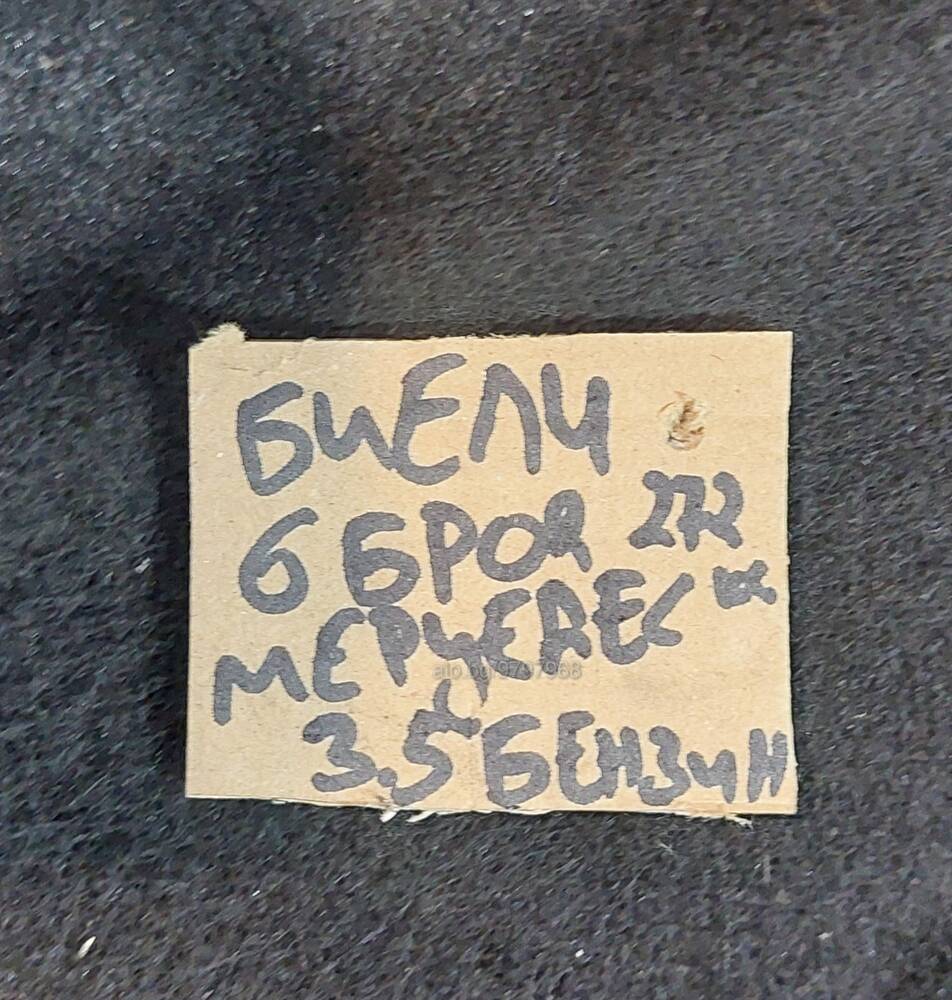 БИЕЛИ
6 БРОЯ 272
МЕРЦЕДЕС
3.5 БЕНЗИН
alo.bg/9797968